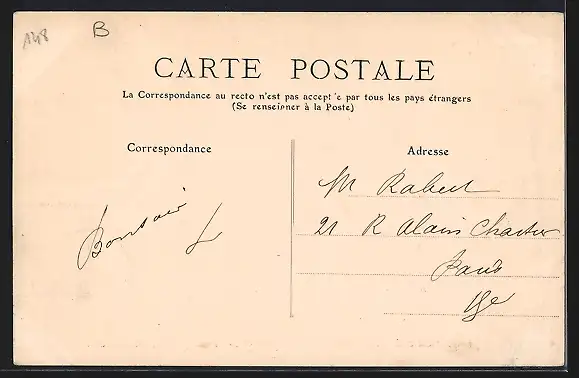 148 B
CARTE POSTALE
La Correspondance au recto n'est pas accept'e par tous les pays étrangers
(Se renseigner à la Poste)
Correspondance
Adresse
M Robert
21 R Alain Chartier
Paris
15e
Bonsoir
L